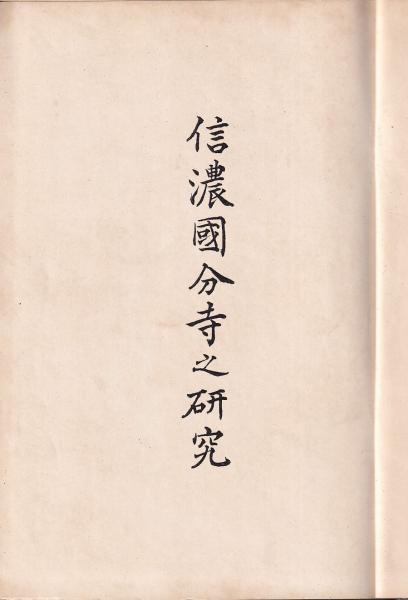 信濃國分寺之硏究